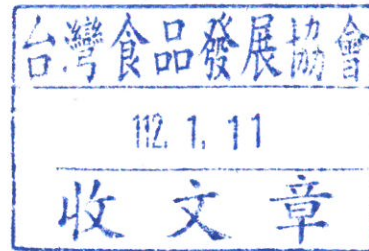 台灣食品發展協會
112. 1. 11
收文章